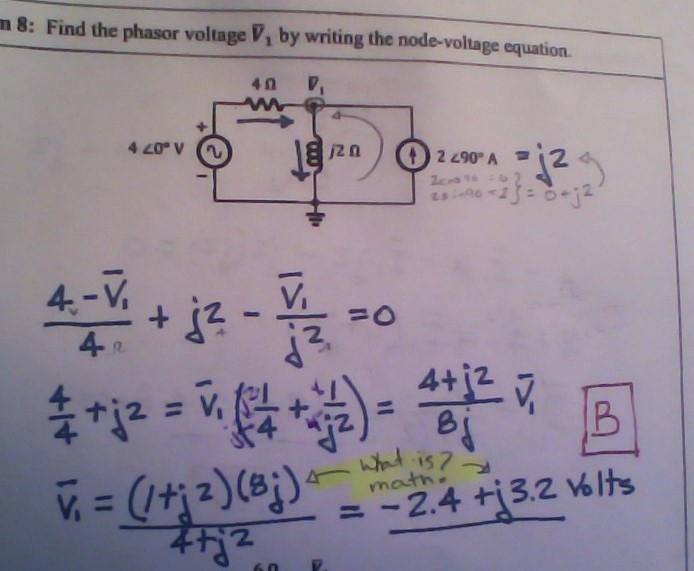 n 8: Find the phasor voltage V̅₁ by writing the node-voltage equation.
4 Ω V̅₁
+
4 ∠0° V
−
j2 Ω
2 ∠90° A = j2
2cos90 = 0
2sin90 = 2 } = 0 + j2
(4 - V̅₁)/4 Ω + j2 - V̅₁/j2 = 0
4/4 + j2 = V̅₁ (1/4 + 1/j2) = (4+j2)/8j V̅₁
B
V̅₁ = (1+j2)(8j)/(4+j2) = -2.4 + j3.2 Volts
what is?
math.
6Ω V̅